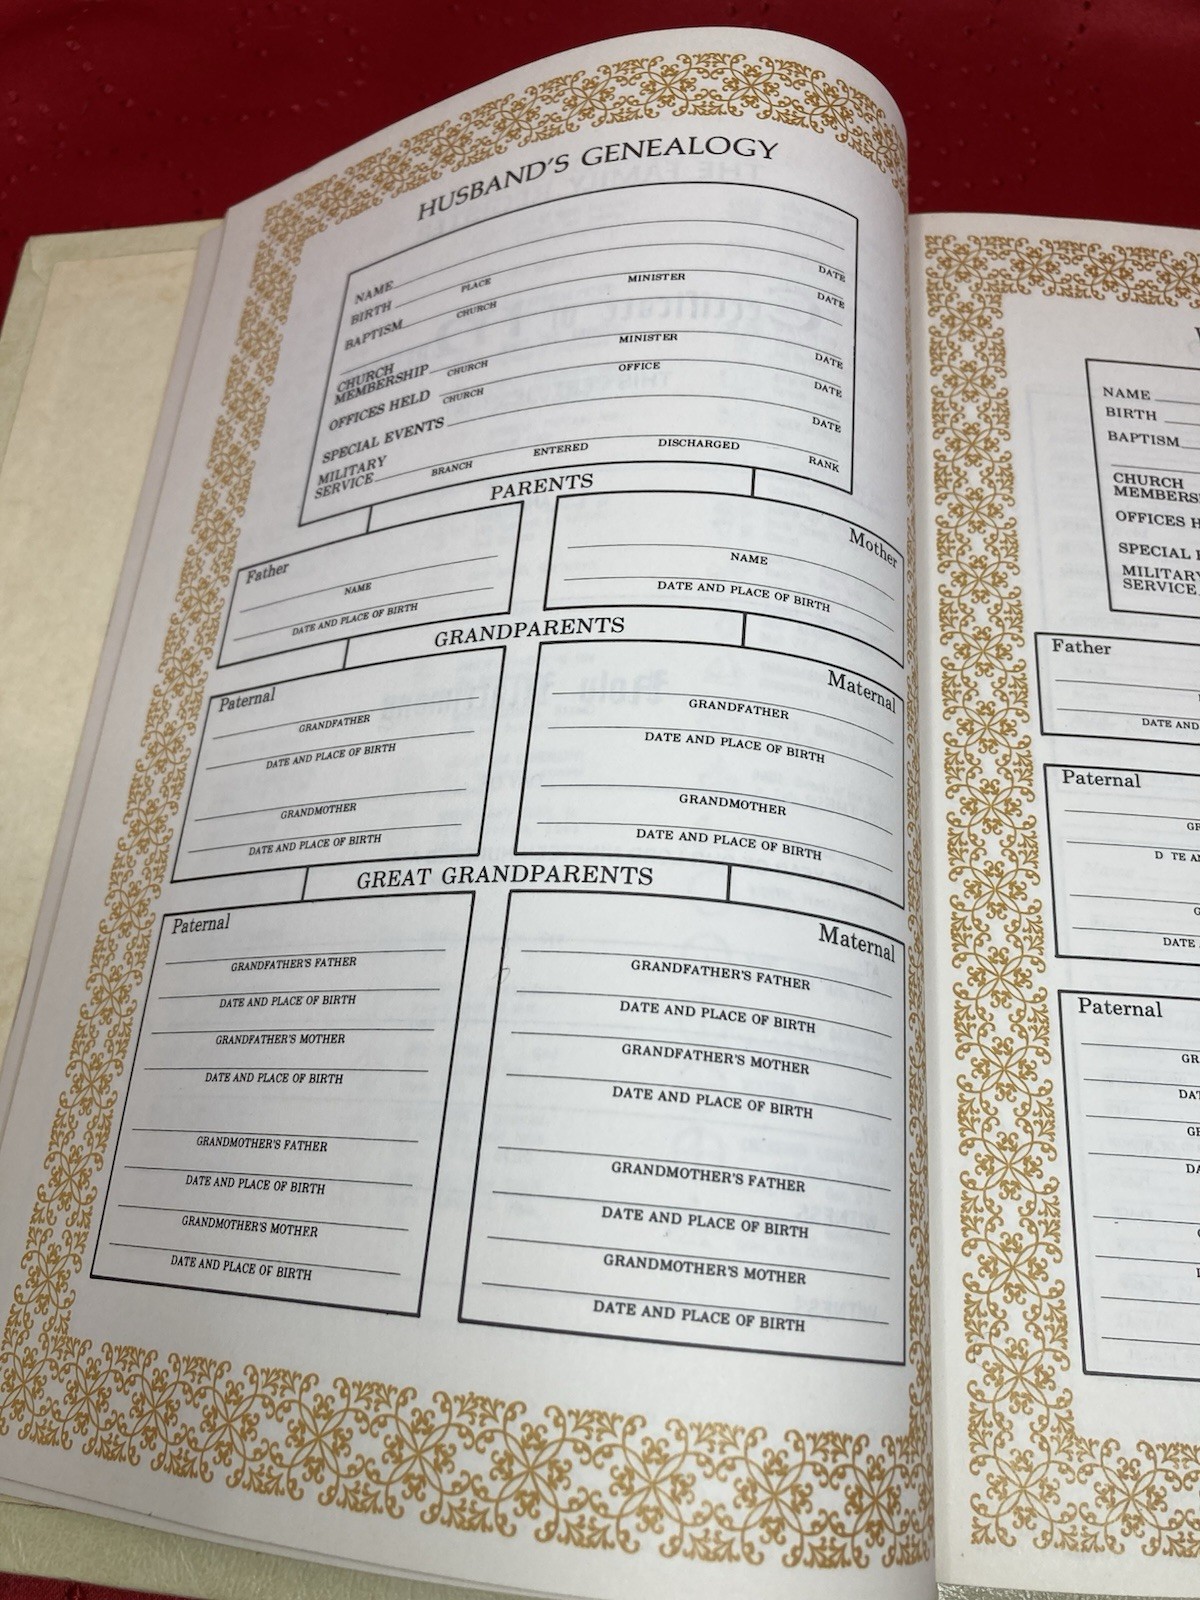 HUSBAND'S GENEALOGY
NAME
BIRTH PLACE DATE
BAPTISM CHURCH MINISTER DATE
CHURCH
MEMBERSHIP CHURCH MINISTER DATE
OFFICES HELD CHURCH OFFICE DATE
SPECIAL EVENTS DATE
MILITARY
SERVICE BRANCH ENTERED DISCHARGED RANK
PARENTS
Father
NAME
DATE AND PLACE OF BIRTH
Mother
NAME
DATE AND PLACE OF BIRTH
GRANDPARENTS
Paternal
GRANDFATHER
DATE AND PLACE OF BIRTH
GRANDMOTHER
DATE AND PLACE OF BIRTH
Maternal
GRANDFATHER
DATE AND PLACE OF BIRTH
GRANDMOTHER
DATE AND PLACE OF BIRTH
GREAT GRANDPARENTS
Paternal
GRANDFATHER'S FATHER
DATE AND PLACE OF BIRTH
GRANDFATHER'S MOTHER
DATE AND PLACE OF BIRTH
GRANDMOTHER'S FATHER
DATE AND PLACE OF BIRTH
GRANDMOTHER'S MOTHER
DATE AND PLACE OF BIRTH
Maternal
GRANDFATHER'S FATHER
DATE AND PLACE OF BIRTH
GRANDFATHER'S MOTHER
DATE AND PLACE OF BIRTH
GRANDMOTHER'S FATHER
DATE AND PLACE OF BIRTH
GRANDMOTHER'S MOTHER
DATE AND PLACE OF BIRTH
NAME
BIRTH
BAPTISM
CHURCH
MEMBERS
OFFICES H
SPECIAL
MILITARY
SERVICE
Father
DATE AND
Paternal
DATE
Paternal